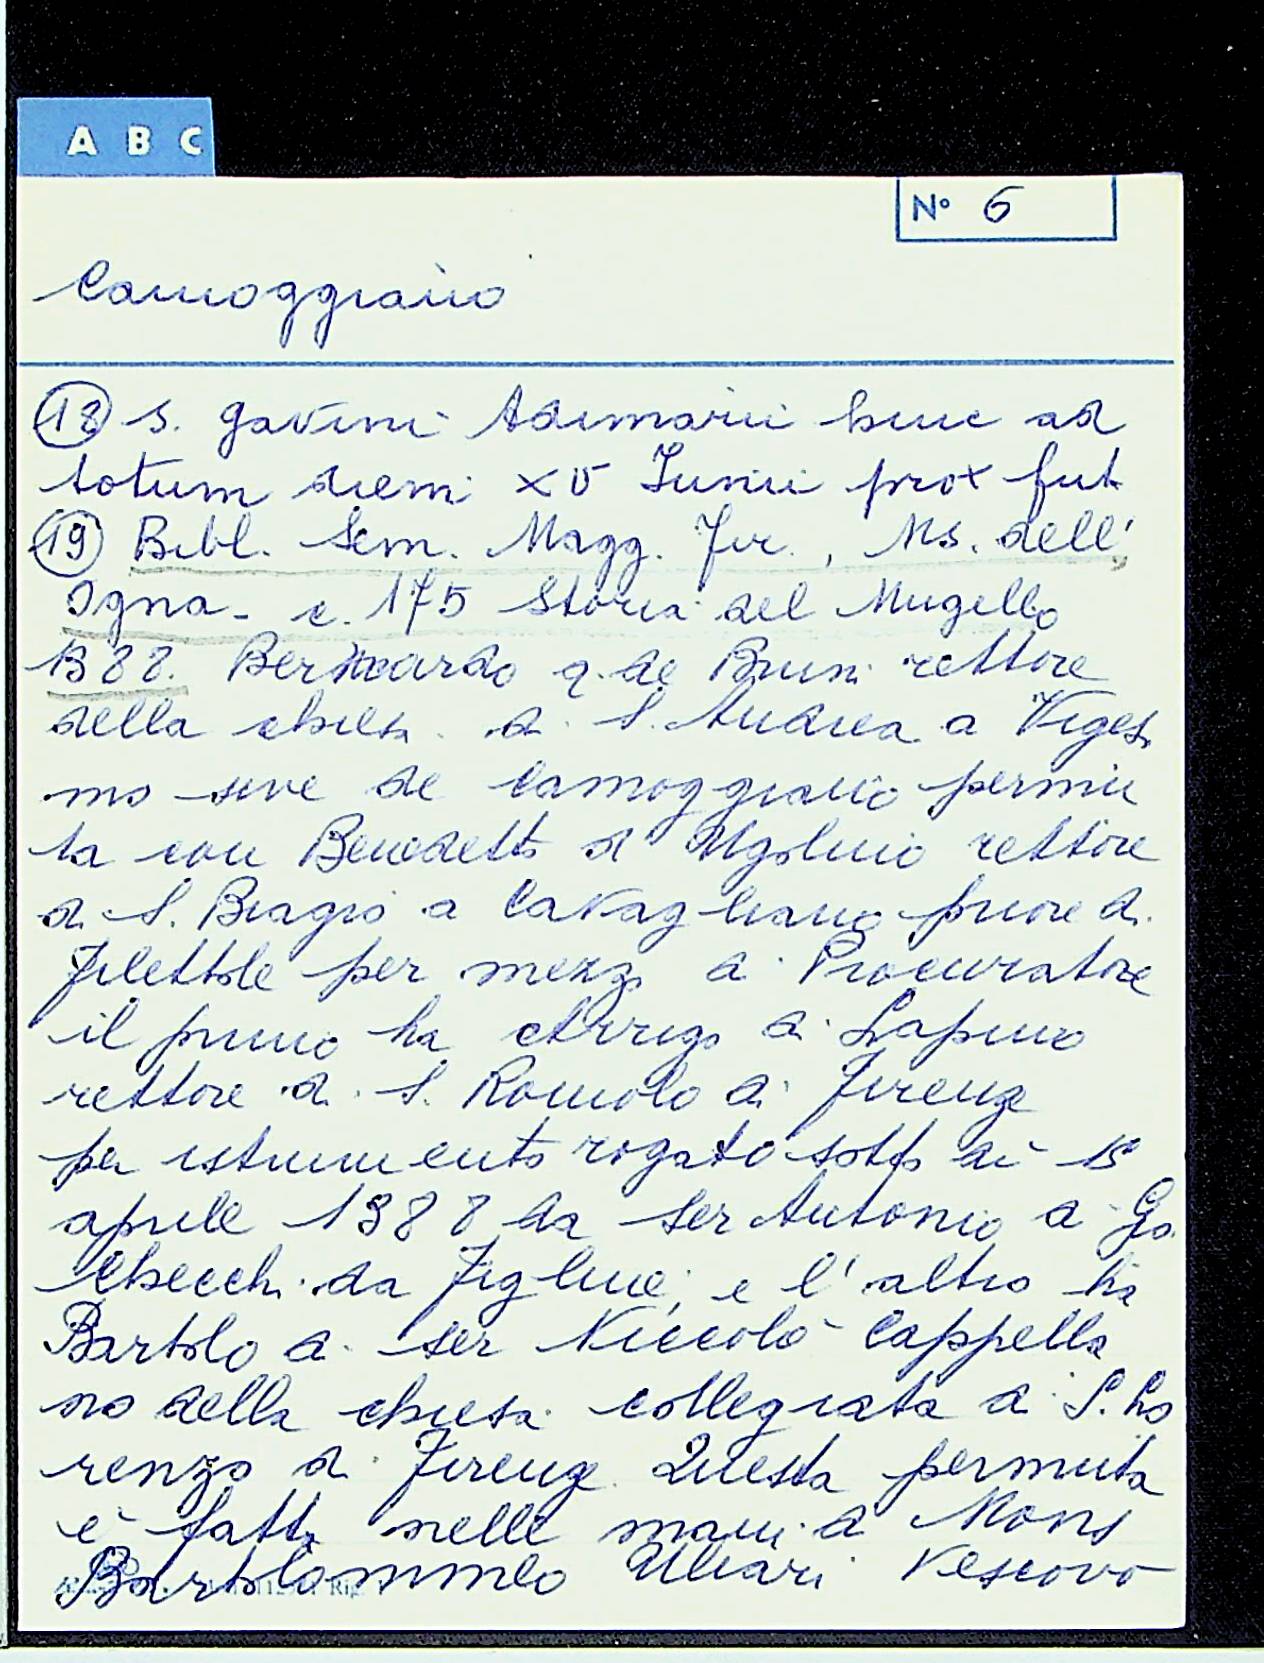 A B C
N° 6
Camoggiano
18 S. Gavini Adimarii hinc ad
totum diem XV Iunii prox fut
19 Bibl. Sem. Magg. Fir., Ms. dell'
Ogna - c. 175 Storia del Mugello
1388. Bernardo q. de Bruni rettore
della chiesa di S. Andrea a Viges
mo sive de Camoggiano permu
ta con Benedetto di Ugolino rettore
di S. Biagio a Cavagliano priore di
Filettole per mezzo di Procuratore
il primo ha Arrigo di Lapino
rettore di S. Romolo di Firenze
per istrumento rogato sotto dì 15
aprile 1388 da ser Antonio di Gio.
Checchi da Figline, e l'altro ha
Bartolo di ser Niccolò Cappella
no della chiesa collegiata di S. Lo
renzo di Firenze. Questa permuta
è fatta nelle mani di Mons
Bartolommeo Uliari Vescovo